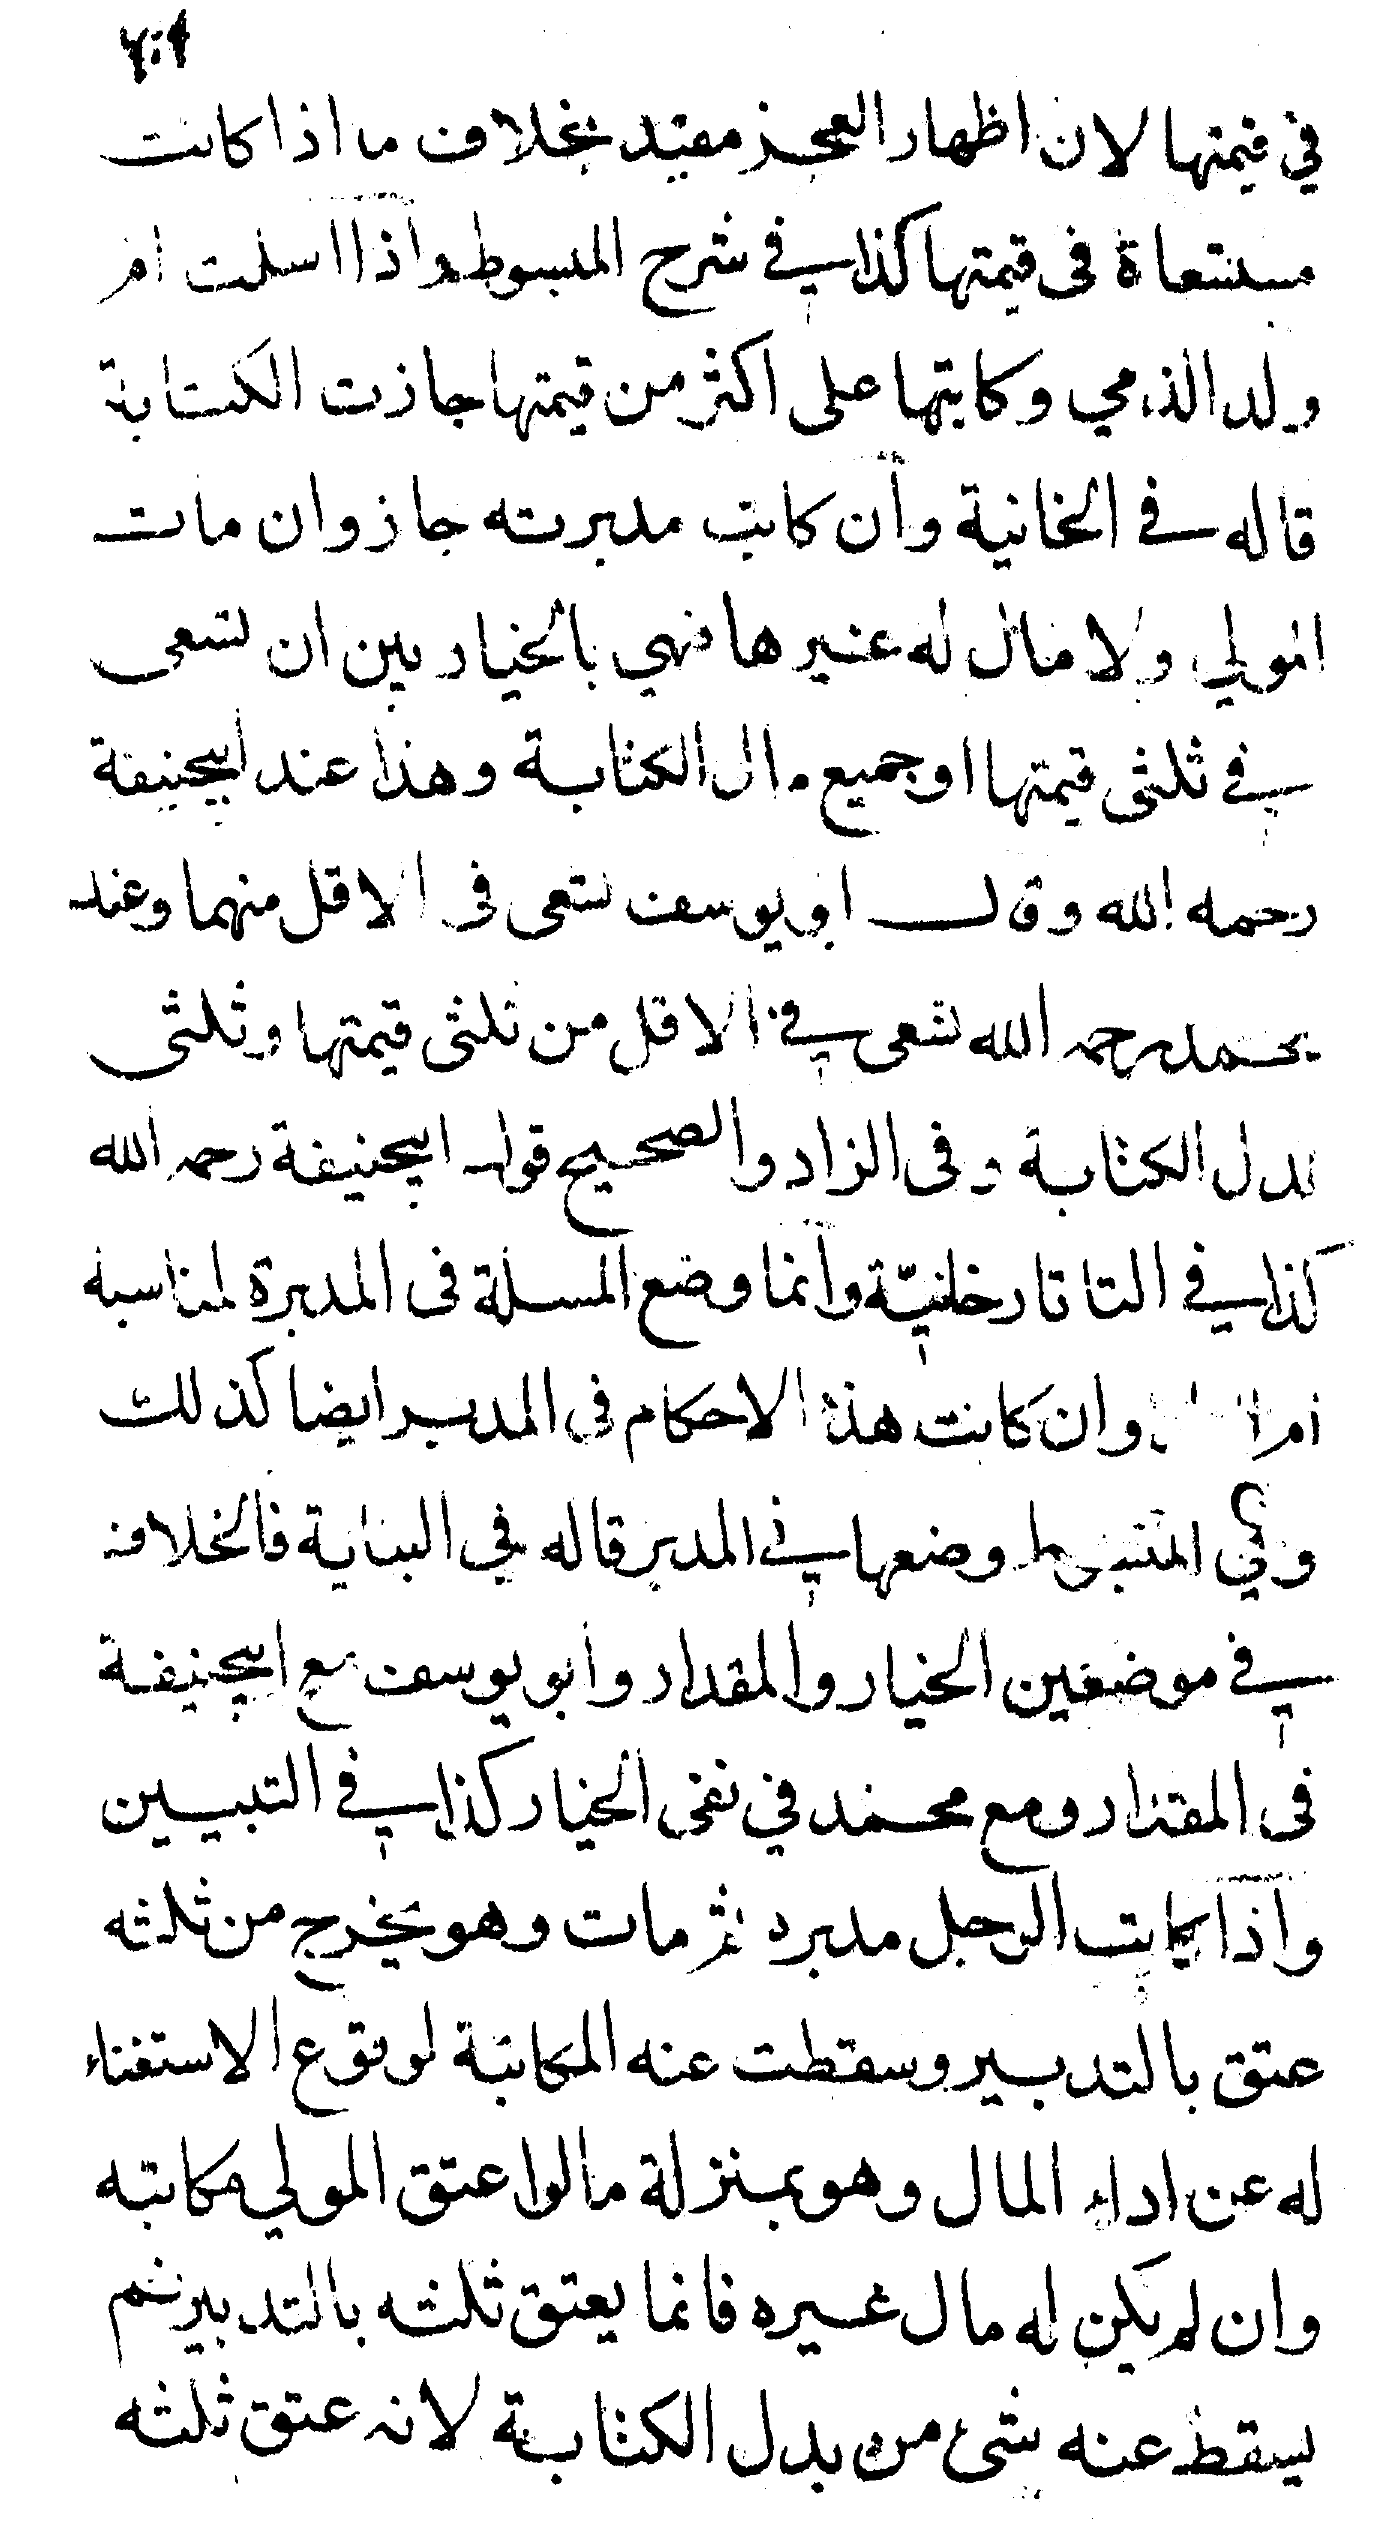 في قيمتها لان اظهار العجز مفيد بخلاف ما اذا كانت
مستسعاة فى قيمتها كذا في شرح المبسوط واذا اسلمت ام
ولد الذمي وكاتبها على اكثر من قيمتها جازت الكتابة
قاله في الخانية وان كاتب مدبرته جاز وان مات
المولي ولا مال له غيرها فهي بالخيار بين ان تسعى
في ثلثى قيمتها او جميع مال الكتابة وهذا عند ابيحنيفة
رحمه الله وقال ابو يوسف تسعى فى الاقل منهما وعند
محمد رحمه الله تسعى في الاقل من ثلثى قيمتها وثلثى
بدل الكتابة وفى الزاد والصحيح قول ابيحنيفة رحمه الله
كذا في التاتارخانيّة وانما وضع المسلة فى المدبرة لمناسبة
ام وان كانت هذه الاحكام فى المدبر ايضا كذلك
وفي المبسوط وضعها في المدبر قاله في البناية فالخلاف
في موضعين الخيار والمقدار وابو يوسف مع ابيحنيفة
فى المقدار ومع محمد في نفى الخيار كذا في التبيين
واذا كاتب الرجل مدبره ثم مات وهو يخرج من ثلثه
عتق بالتدبير وسقطت عنه المكاتبة لوقوع الاستغناء
له عن اداء المال وهو بمنزلة ما لو اعتق المولي مكاتبه
وان لم يكن له مال غيره فانما يعتق ثلثه بالتدبير ثم
يسقط عنه شئ من بدل الكتابة لانه عتق ثلثه